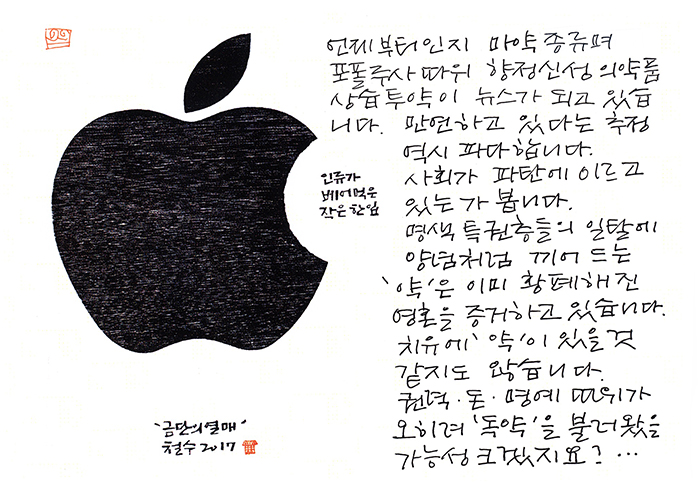 언제부터인지 마약종류며
프포폴주사 따위 향정신성 의약품
상습투약이 뉴스가 되고 있습
니다. 만연하고 있다는 추정
역시 파다합니다.
사회가 파탄에 이르고
있는가 봅니다.
명색 특권층들의 일탈에
양념처럼 끼어 드는
'약'은 이미 황폐해진
영혼을 증거하고 있습니다.
치유에 '약'이 있을 것
같지도 않습니다.
권력·돈·명예 따위가
오히려 '독약'을 불러왔을
가능성 크겠지요? ···
인류가
베어먹은
작은 한입
"금단의 열매"
철수 2017